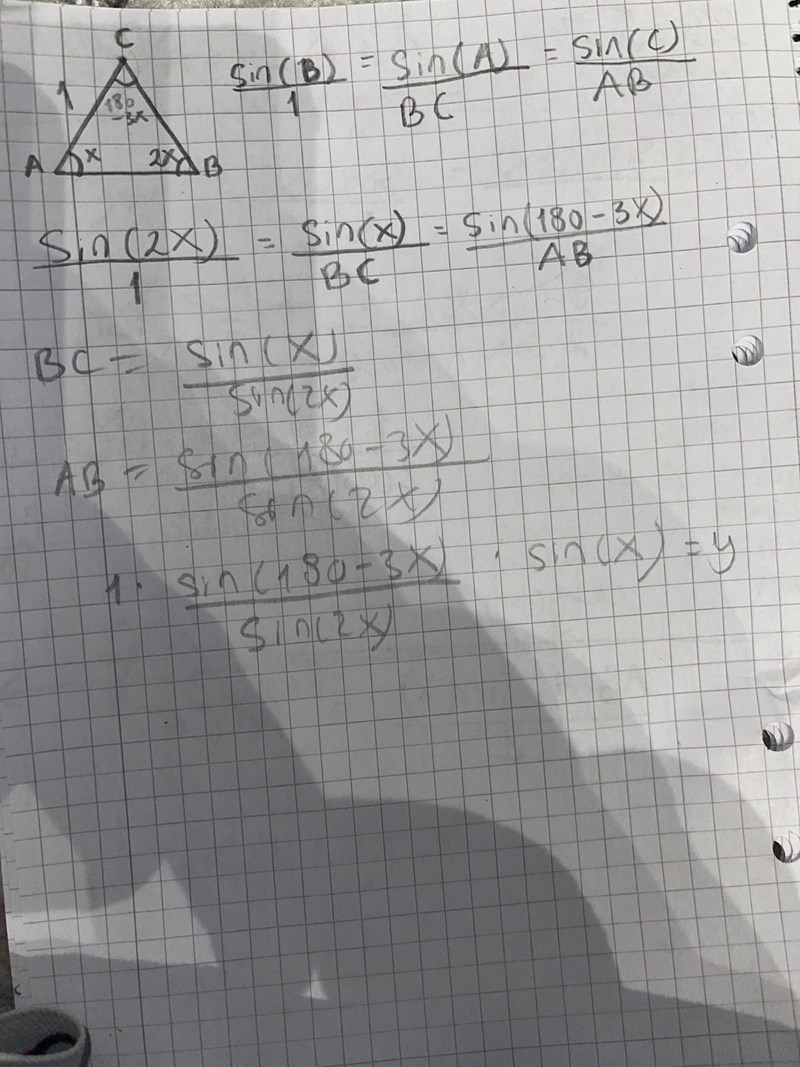 C
1
180
-3x
A x 2x B
sin(B)/1 = sin(A)/BC = sin(C)/AB
sin(2x)/1 = sin(x)/BC = sin(180-3x)/AB
BC = sin(x)/sin(2x)
AB = sin(180-3x)/sin(2x)
1 · sin(180-3x)/sin(2x) · sin(x) = y